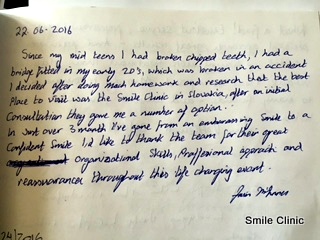 22.06-2016
Since my mid teens I had broken chipped teeth, I had a
bridge fitted in my early 20's, which was broken in an accident
I decided after doing much homework and research that the best
Place to visit was the Smile Clinic in Slovakia, after an initial
Consultation they gave me a number of option..
In Just over 3 month I've gone from an embarrassing Smile to a
Confident Smile I'd like to thank the team for their great
Organizational Skills, Proffesional approach and
reassurances throughout this life changing event.
Smile Clinic
24/2016